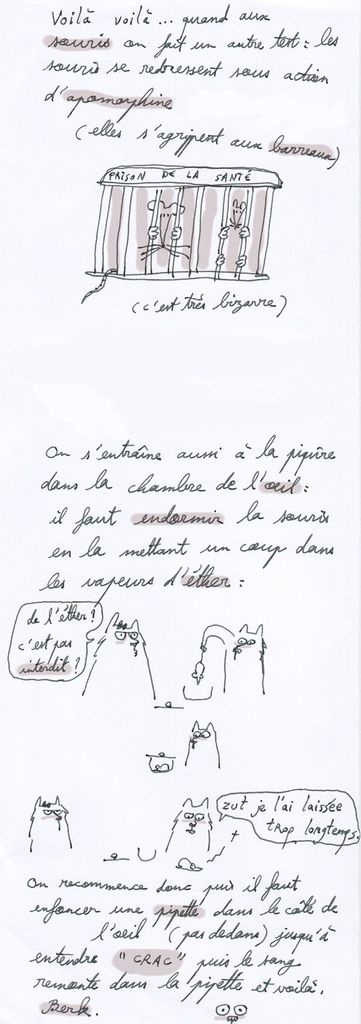 Voilà voilà... quand aux
souris on fait un autre test : les
souris se redressent sous action
d'apomorphine
(elles s'agrippent aux barreaux)
PRISON DE LA SANTÉ
(c'est très bizarre)
On s'entraîne aussi à la piqûre
dans la chambre de l'oeil :
il faut endormir la souris
en la mettant un coup dans
les vapeurs d'éther :
de l'éther ?
c'est pas
interdit ?
zut je l'ai laissée
trop longtemps.
On recommence donc puis il faut
enfoncer une pipette dans le côté de
l'oeil (pas dedans) jusqu'à
entendre "CRAC" puis le sang
remonte dans la pipette et voilà.
Berk.